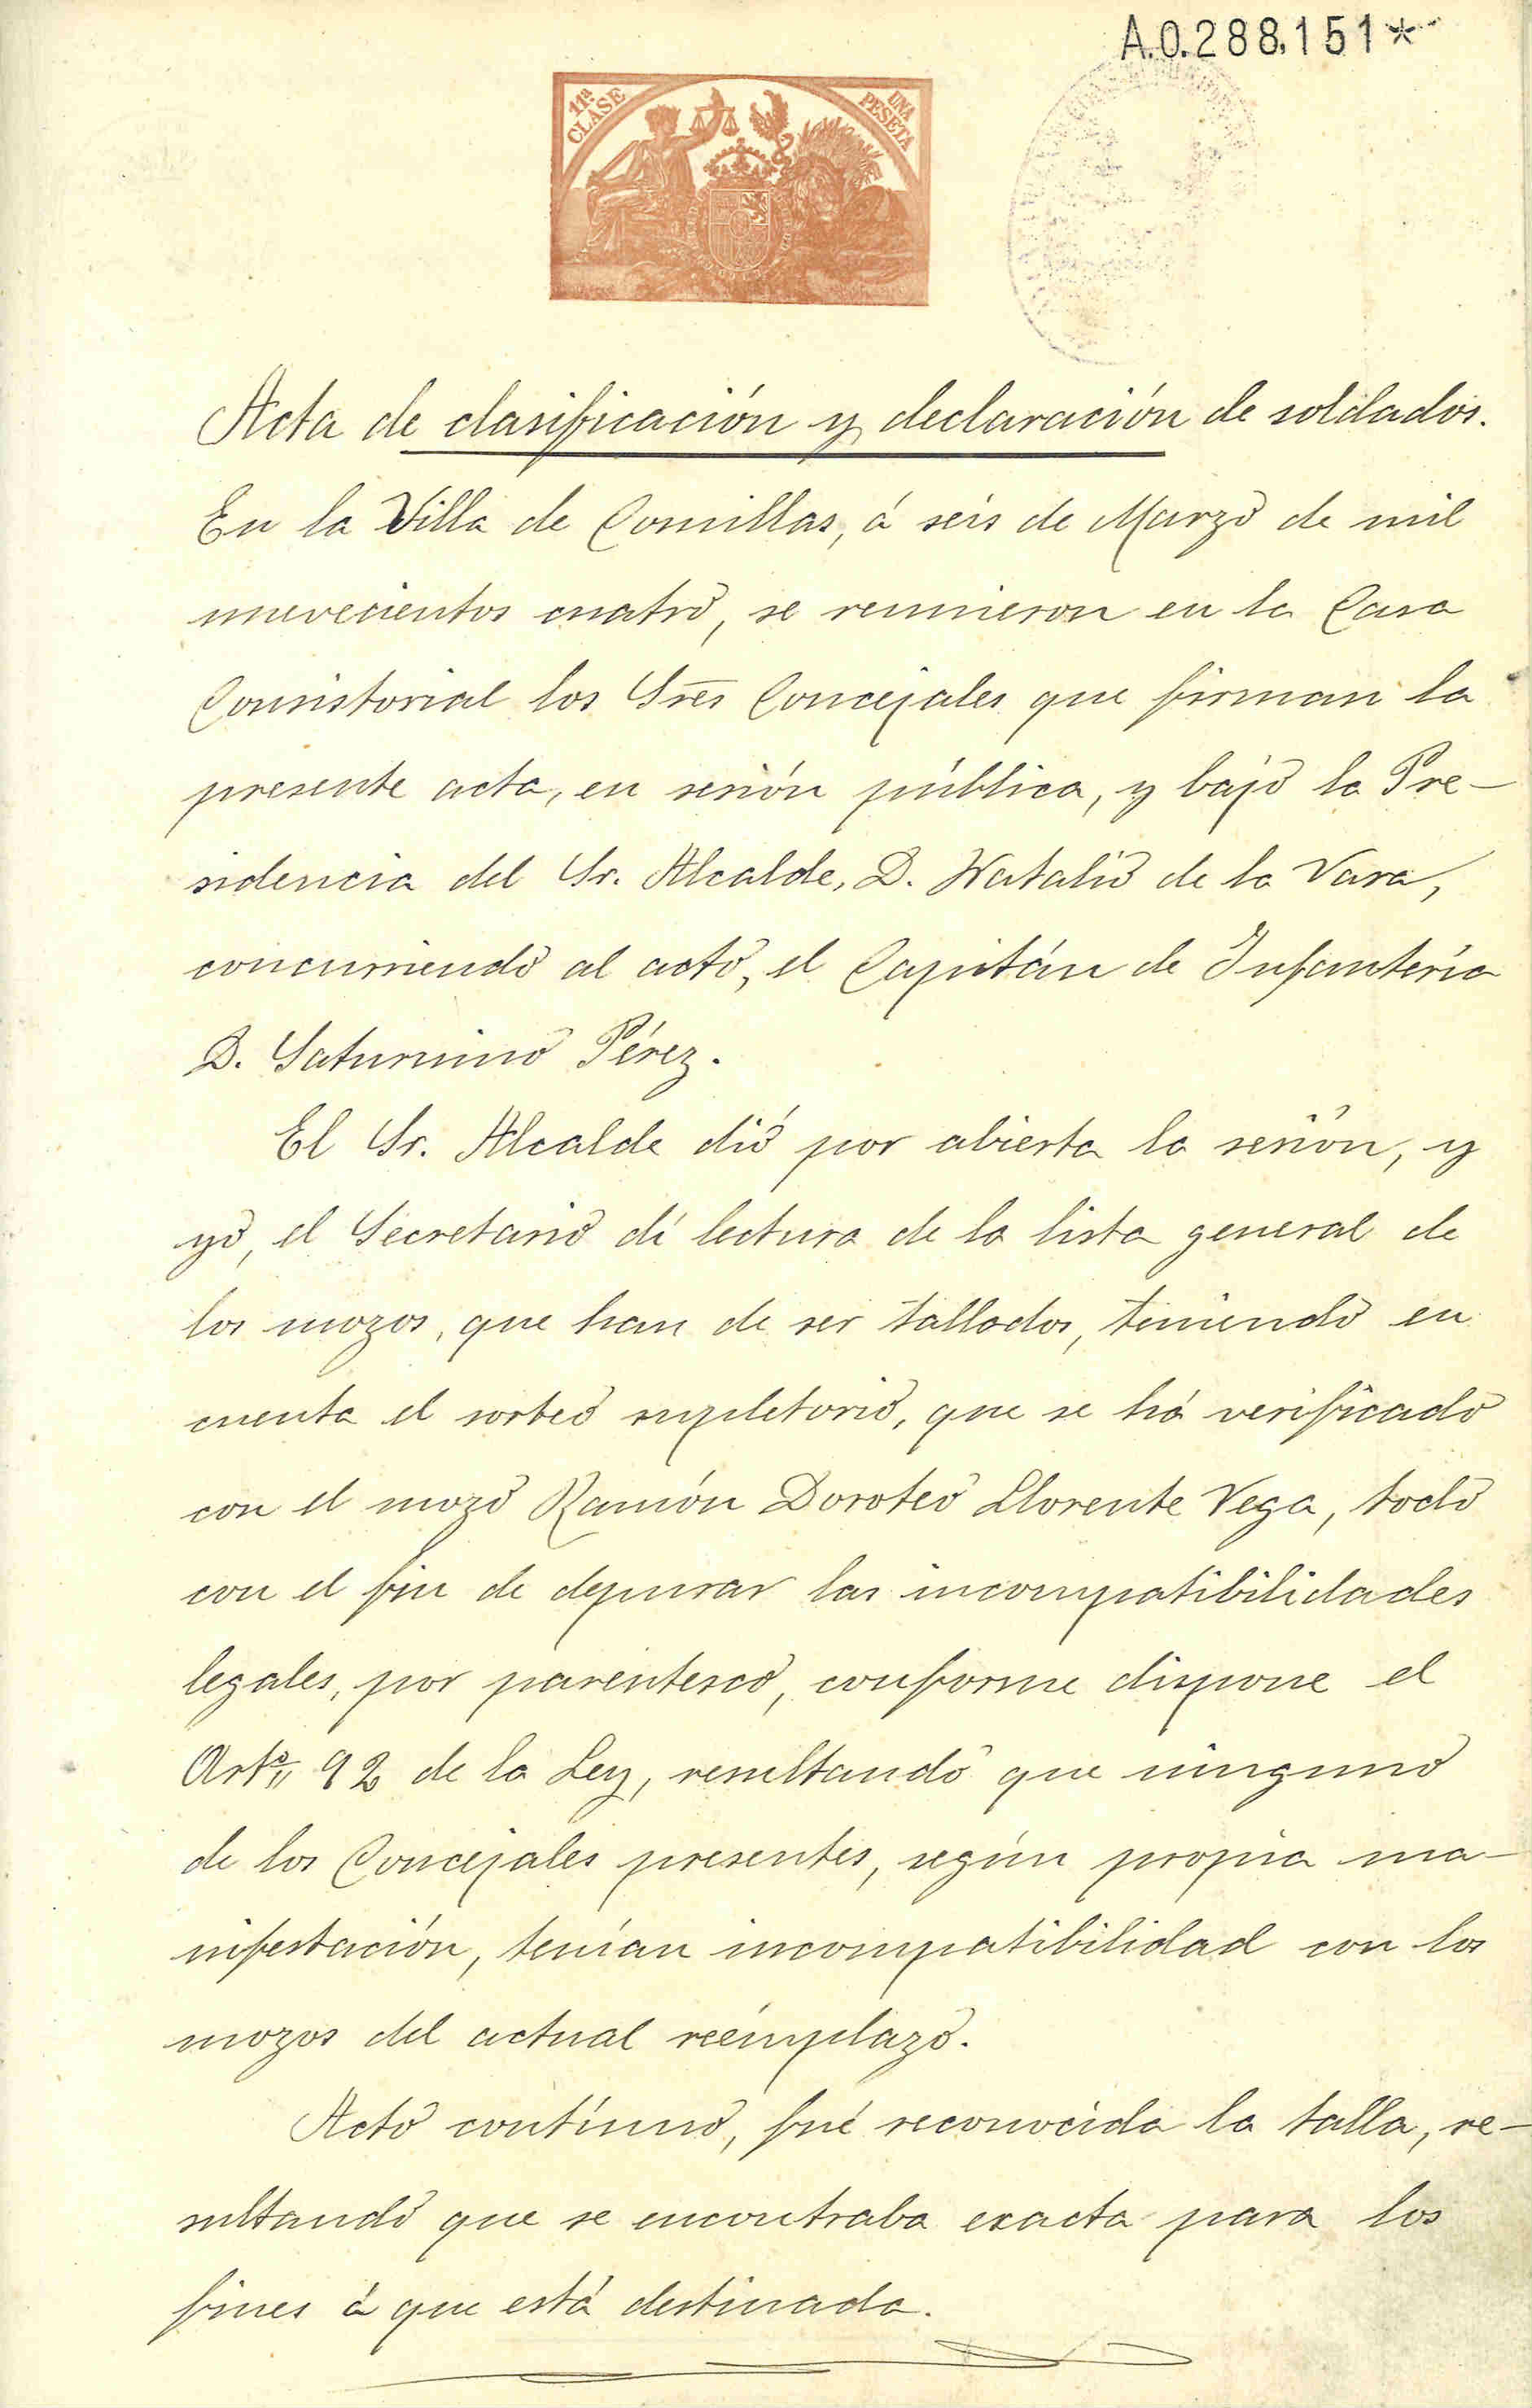 A.0.288,151*
11ª CLASE
UNA PESETA
Acta de clasificación y declaración de soldados.
En la Villa de Comillas, á seis de Marzo de mil
nuevecientos cuatro, se reunieron en la Casa
Consistorial los Sres Concejales que firman la
presente acta, en sesión pública, y bajo la Pre-
sidencia del Sr. Alcalde, D. Natalio de la Vara,
concurriendo al acto, el Capitán de Infantería
D. Saturnino Pérez.
El Sr. Alcalde dió por abierta la sesión, y
yo, el Secretario dí lectura de la lista general de
los mozos, que han de ser tallados, teniendo en
cuenta el sorteo supletorio, que se há verificado
con el mozo Ramón Doroteo Llorente Vega, todo
con el fin de depurar las incompatibilidades
legales, por parentesco, conforme dispone el
Artº 92 de la Ley, resultando que ninguno
de los Concejales presentes, según propia ma-
nifestación, tenían incompatibilidad con los
mozos del actual reémplazo.
Acto contínuo, fué reconocida la talla, re-
sultando que se encontraba exacta para los
fines á que está destinada.